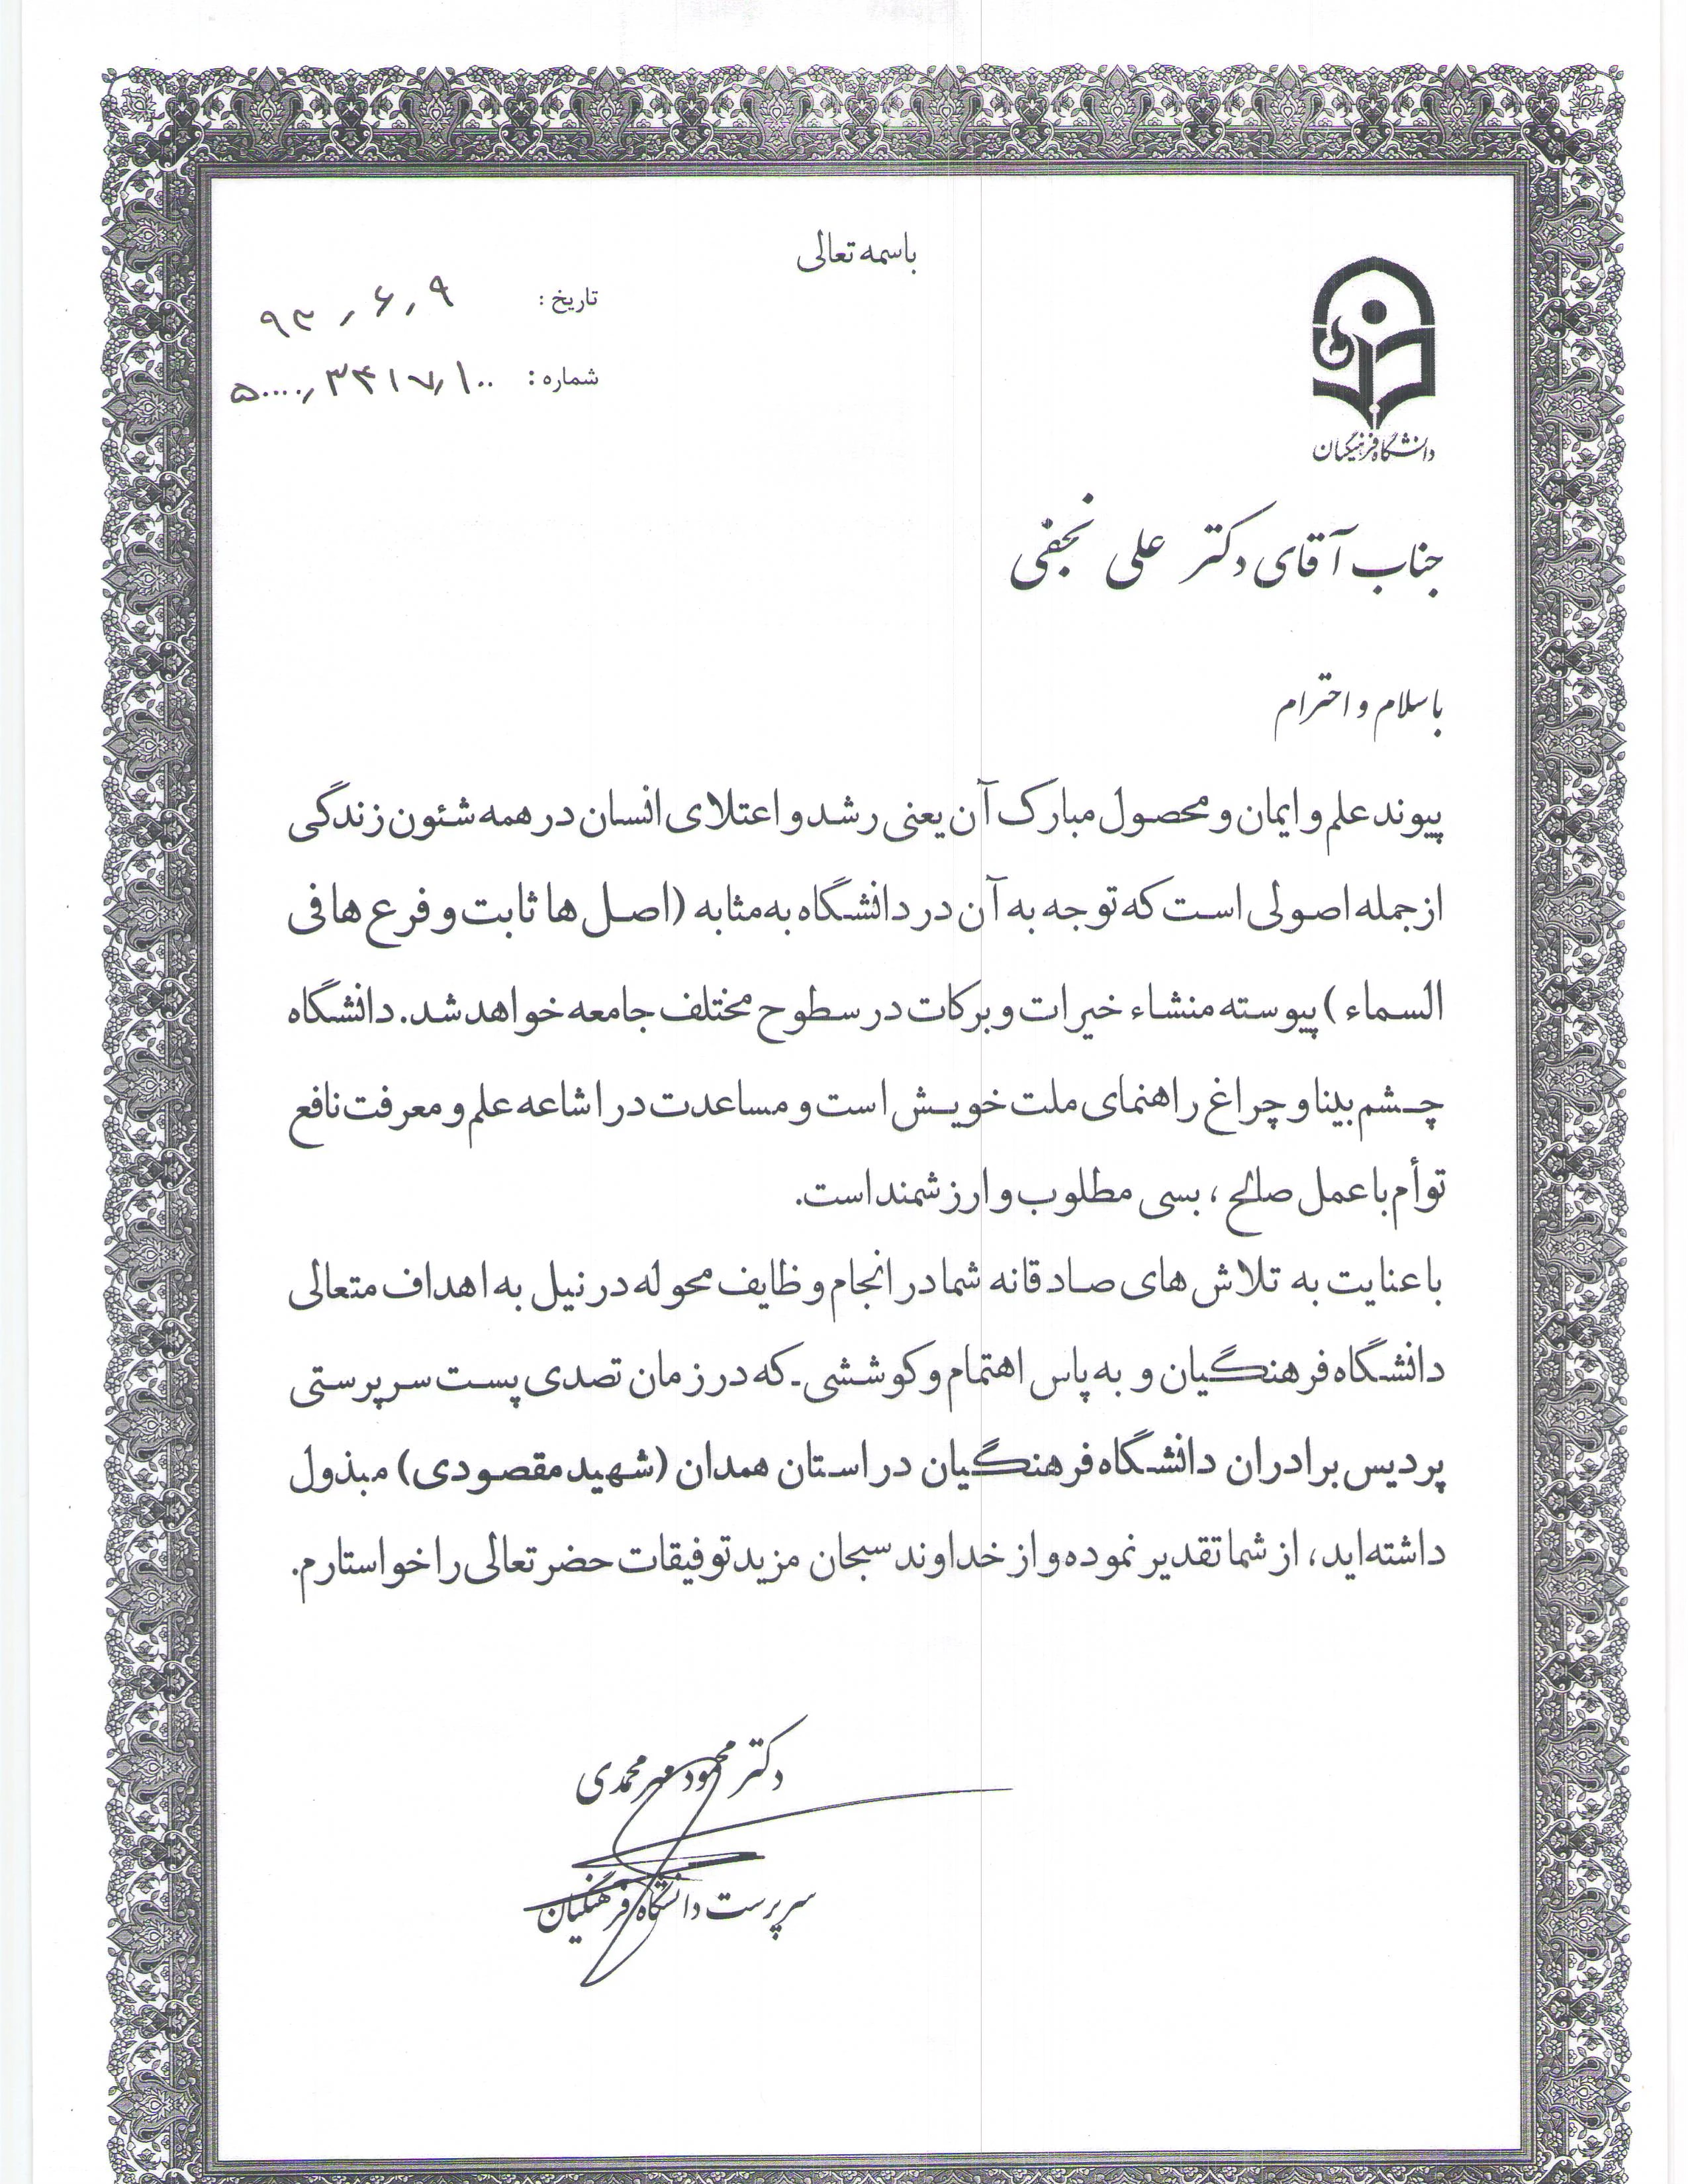 باسمه تعالی
تاریخ : ۹۳٫۶٫۹
شماره : ۵۰۰۰۰٫۳۴۱۷٫۱۰۰
دانشگاه فرهنگیان
جناب آقای دکتر علی نجفی
با سلام و احترام
پیوند علم و ایمان و محصول مبارک آن یعنی رشد و اعتلای انسان در همه شئون زندگی
از جمله اصولی است که توجه به آن در دانشگاه به مثابه (اصل ها ثابت و فرع ها فی
السماء ) پیوسته منشاء خیرات و برکات در سطوح مختلف جامعه خواهد شد. دانشگاه
چشم بینا و چراغ راهنمای ملت خویش است و مساعدت در اشاعه علم و معرفت نافع
توأم با عمل صالح ، بسی مطلوب و ارزشمند است.
با عنایت به تلاش های صادقانه شما در انجام وظایف محوله در نیل به اهداف متعالی
دانشگاه فرهنگیان و به پاس اهتمام و کوششی - که در زمان تصدی پست سرپرستی
پردیس برادران دانشگاه فرهنگیان در استان همدان (شهید مقصودی) مبذول
داشته اید، از شما تقدیر نموده و از خداوند سبحان مزید توفیقات حضرتعالی را خواستارم.
دکتر محمود مهرمحمدی
سرپرست دانشگاه فرهنگیان